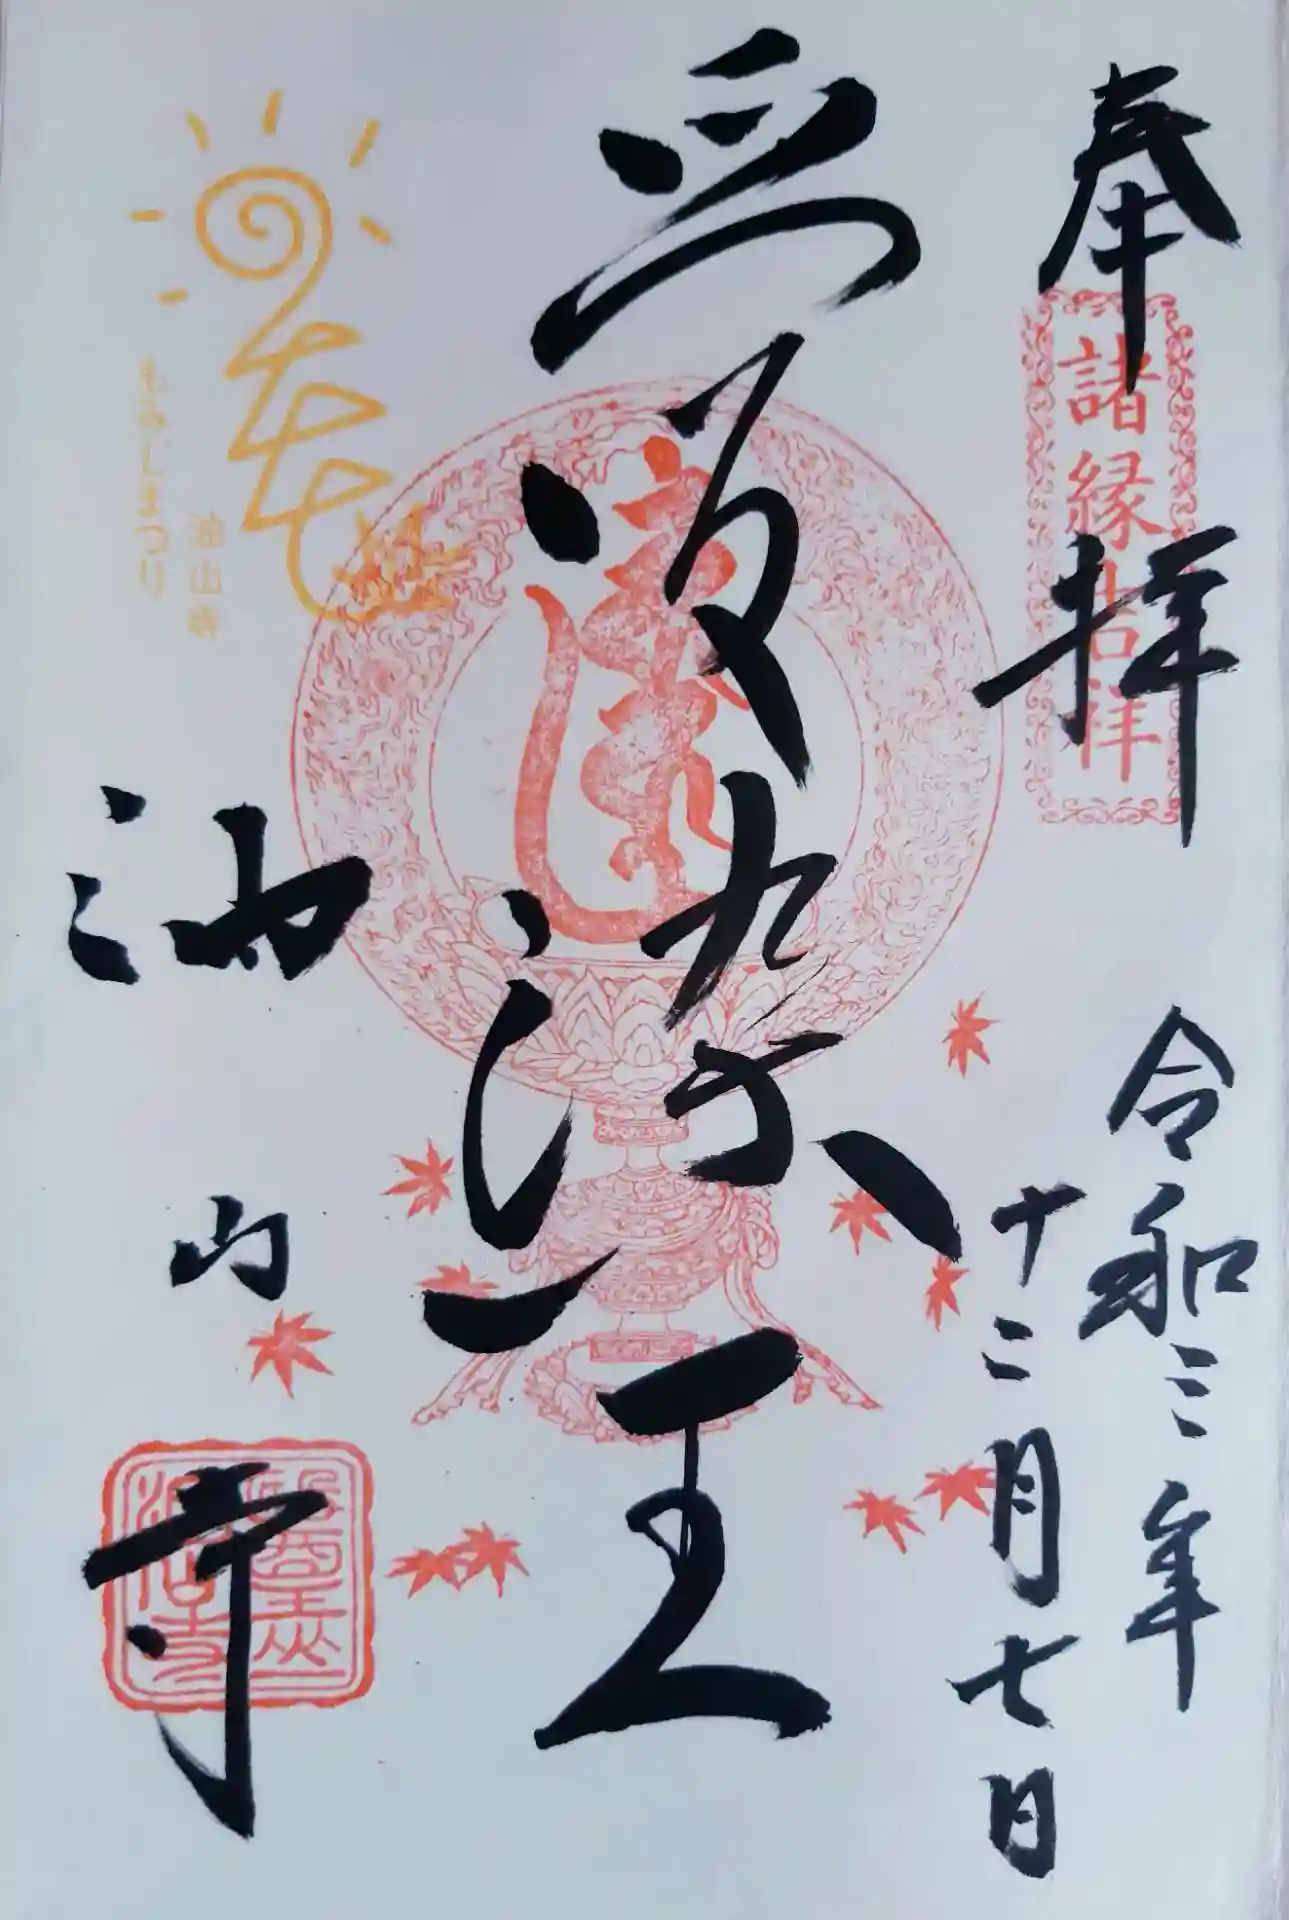 奉拝
諸縁吉祥
令和三年
十二月七日
愛染王
油山寺
もみじまつり
油山寺